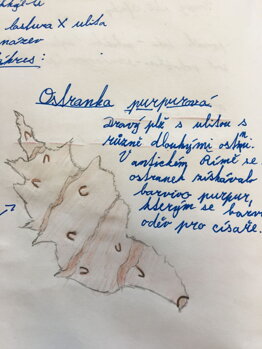 lastura X ulita
název
Ostranka purpurová
Dravý plž s ulitou s
různě dlouhými ostny.
V antickém Římě se z
ostranek získávalo
barvivo purpur,
kterým se barvil
oděv pro císaře.